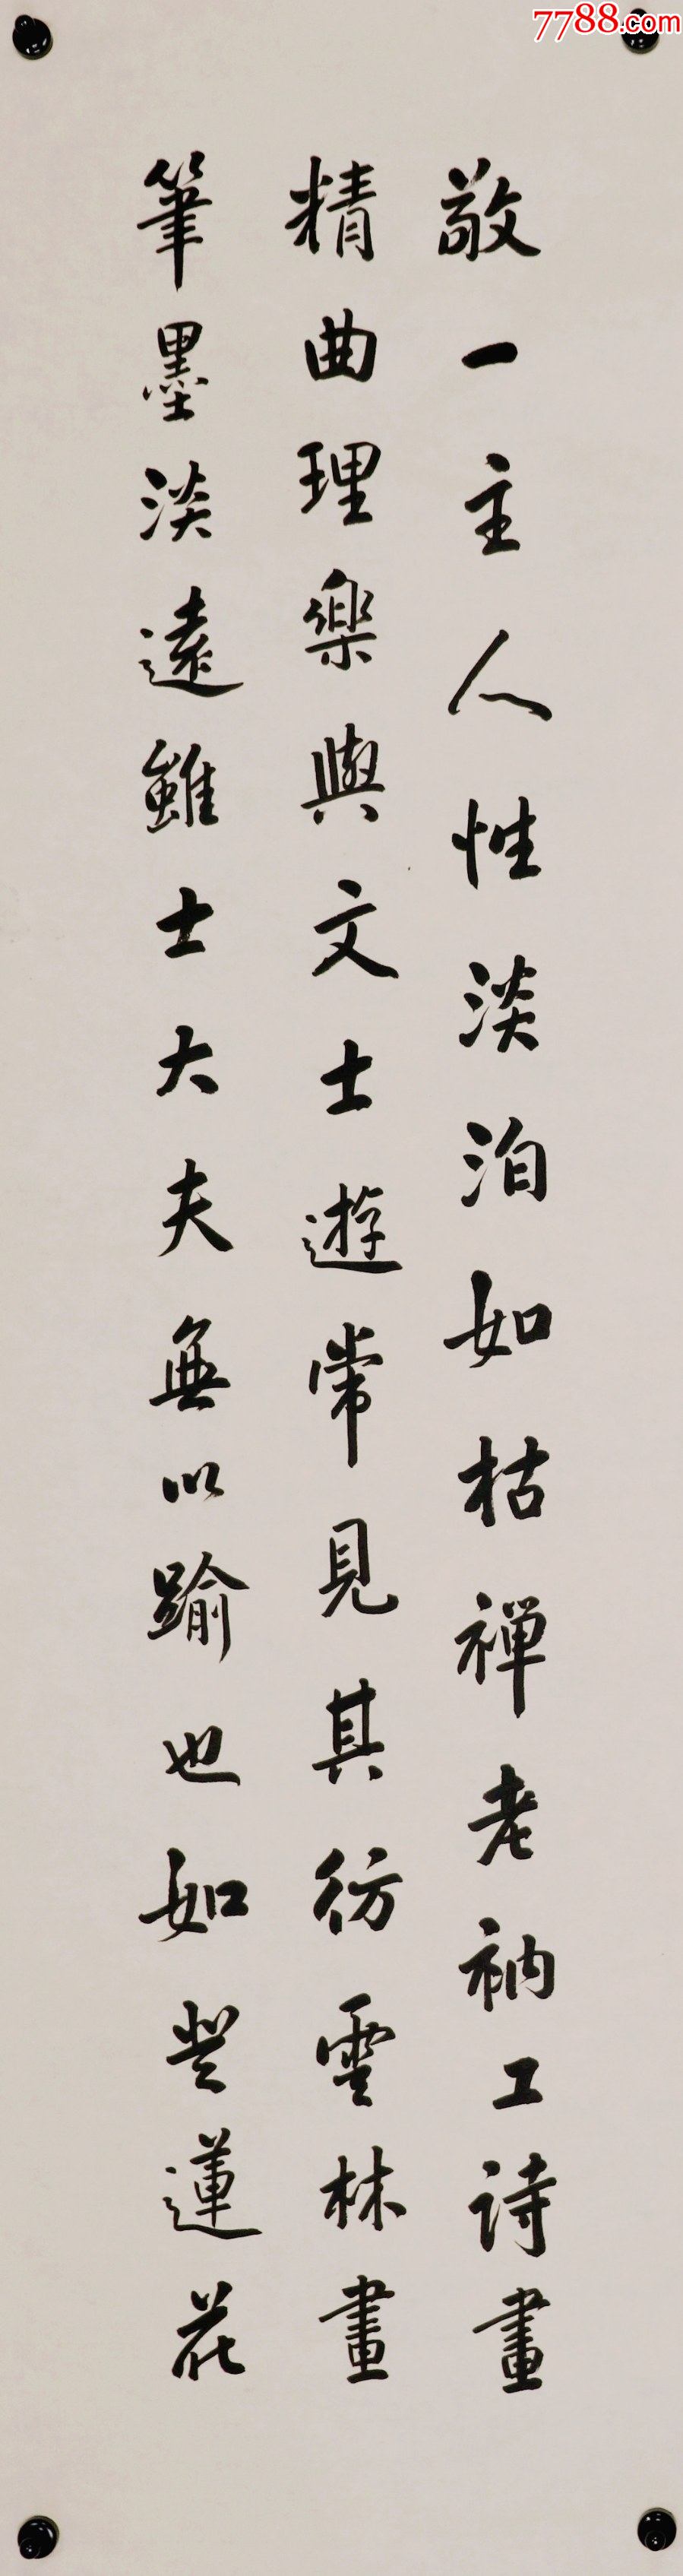 7788.com
敬一主人性淡泊如枯禅老衲工诗畫
精曲理樂與文士遊常見其仿雲林畫
筆墨淡遠雖士大夫無以踰也如登蓮花